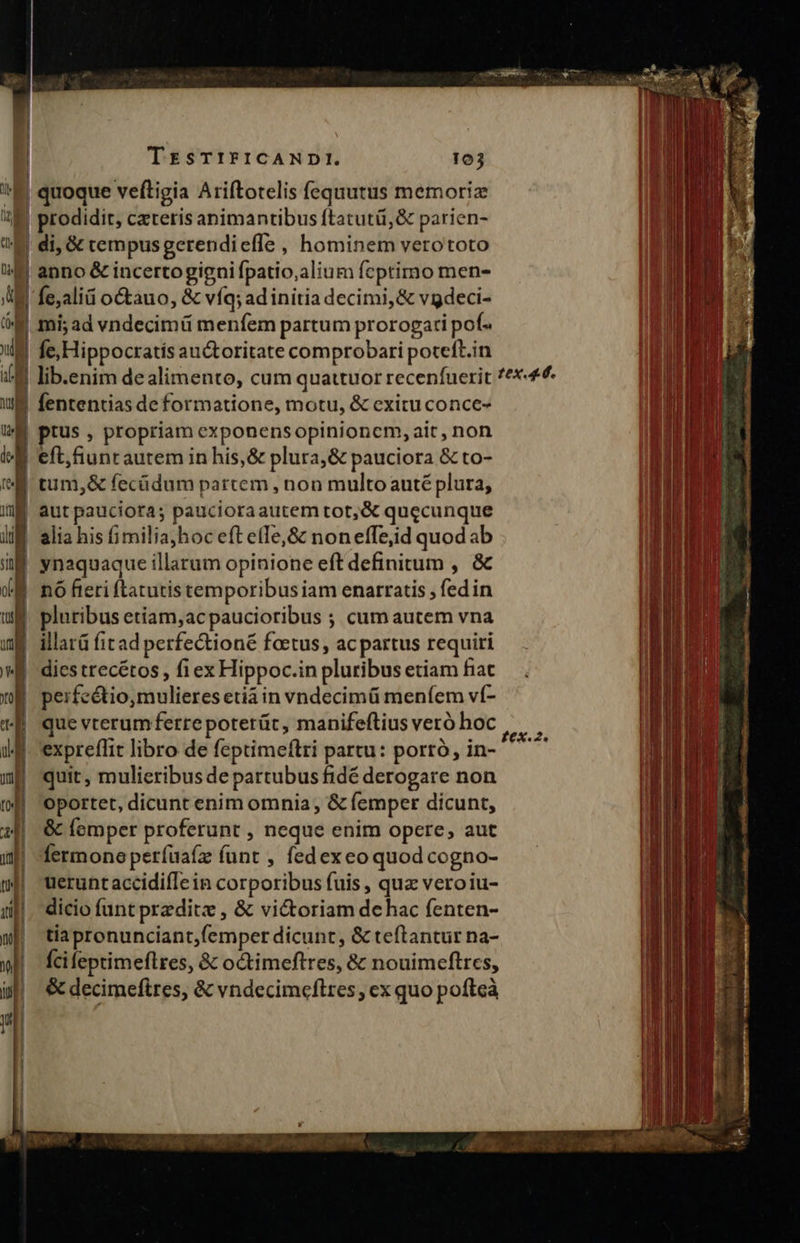 TESTIFICANDI. 103
quoque veſtigia Ariſtotelis ſequutus memoriæ
prodidit, cæteris animantibus ſtatutū, & parien-
di, & tempus gerendi eſſe , hominem vero toto
anno & incerto gigni ſpatio, alium ſeptimo men-
ſe, aliū octauo, & vſq; ad initia decimi, & vndeci-
mi; ad vndecimū menſem partum prorogari poſ-
ſe, Hippocratis auctoritate comprobari poteſt. in
lib. enim de alimento, cum quattuor recenſuerit tex. 46.
ſententias de formatione, motu, & exitu conce-
ptus , propriam exponens opinionem, ait , non
eſt, fiunt autem in his, & plura, & pauciora & to-
tum, & ſecūdum partem , non multo auté plura,
aut pauciora; pauciora autem tot, & quęcunque
alia his ſimilia; hoc eſt eſſe, & non eſſe, id quod ab
vnaquaque illarum opinione eſt definitum , &
nō fieri ſtatutis temporibus iam enarratis , ſed in
pluribus etiam, ac paucioribus ; cum autem vna
illarū ſit ad perfectioné fœtus, ac partus requiri
dies trecétos , ſi ex Hippoc. in pluribus etiam fiat
perfectio, mulieres etiā in vndecimū menſem vſ-
que vterum ferre poterūt, manifeſtius verò hoc
expreſſit libro de ſeptimeſtri partu: porrò, in- tex. 2.
quit, mulieribus de partubus fidé derogare non
oportet, dicunt enim omnia, & ſemper dicunt,
& ſemper proferunt , neque enim opere, aut
ſermone perſuaſæ ſunt , ſed ex eo quod cogno-
uerunt accidiſſe in corporibus ſuis, quæ vero iu-
dicio ſunt præditæ , & victoriam de hac ſenten-
tia pronunciant, ſemper dicunt, & teſtantur na-
ſci ſeptimeſtres, & octimeſtres, & nouimeſtres,
& decimeſtres, & vndecimeſtres, ex quo poſteà